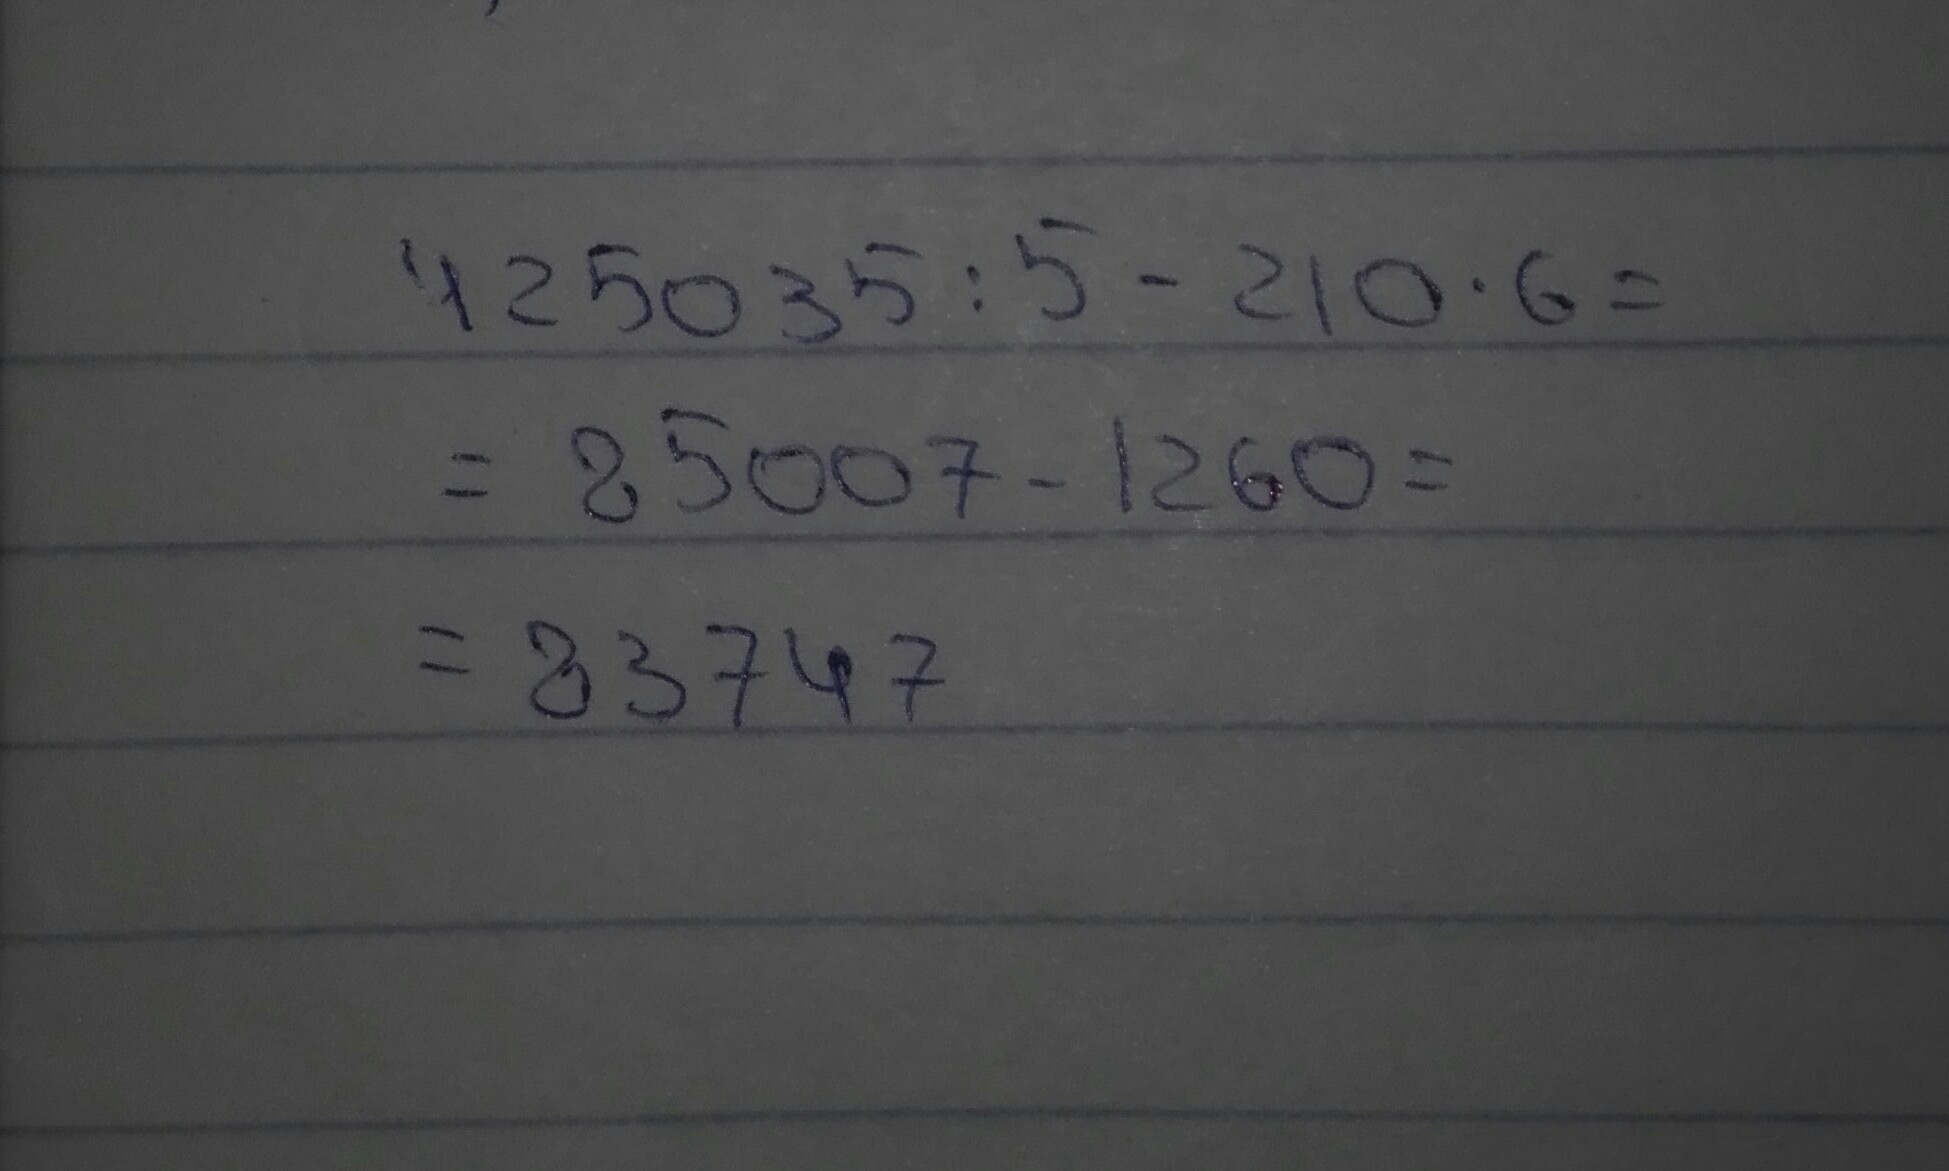 425035:5-210·6=
=85007-1260=
=83747